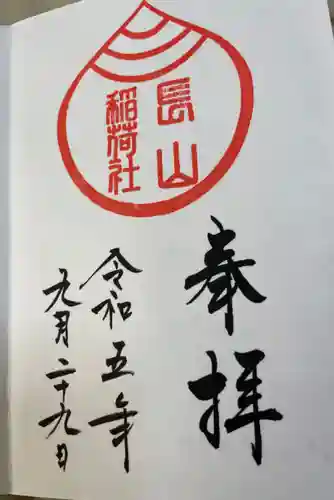 奉拝
長山
稲荷社
令和五年
九月二十九日